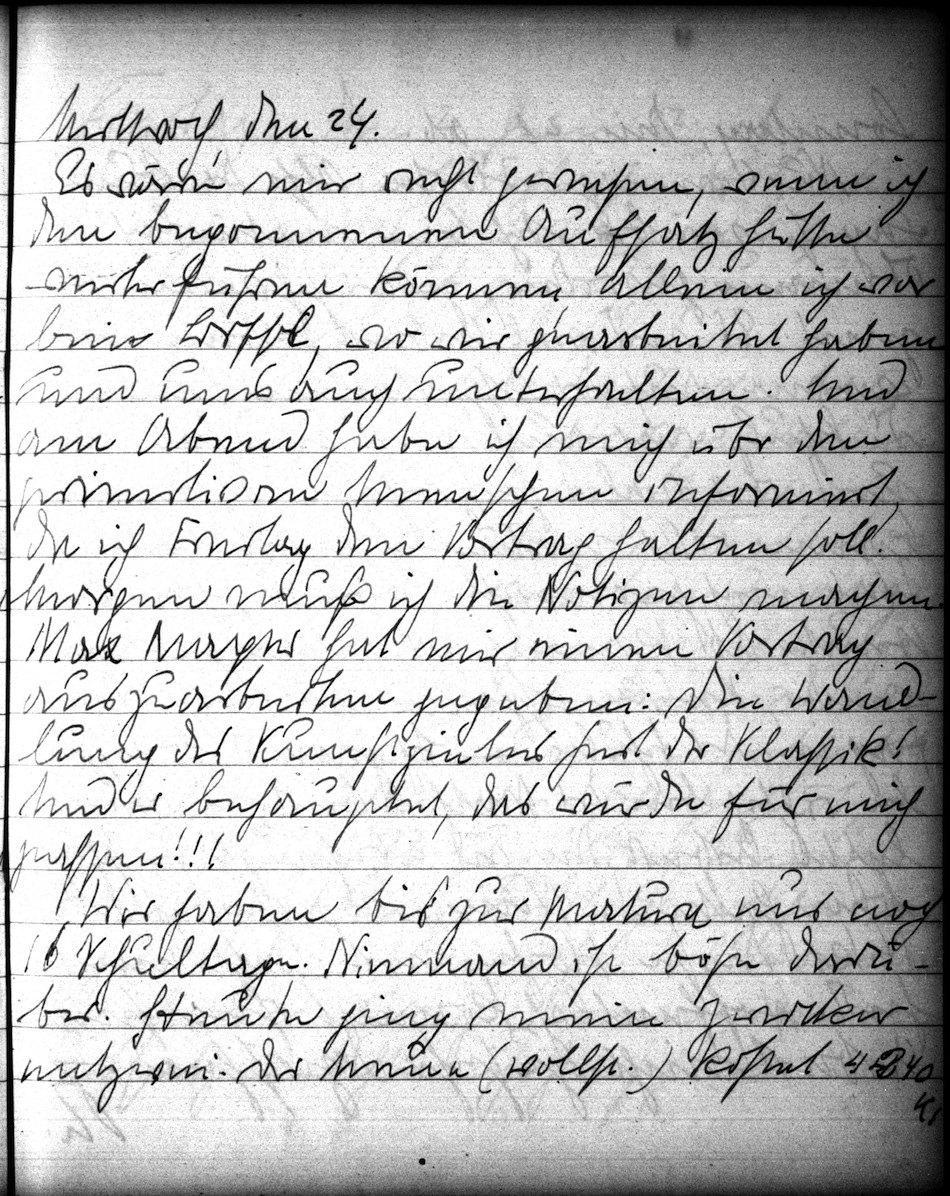 Mittwoch den 24.
Es wäre mir recht gewesen, wenn ich
den begonnenen Aufsatz hätte
weiterführen können allein ich war
beim Löffel, wo wir gearbeitet haben
und uns auch unterhalten. Und
am Abend habe ich mich über den
primitiven Menschen informiert,
da ich Freitag den Vortrag halten soll.
Morgen muß ich die Notizen machen
Max Mayer hat mir einen Vortrag
auszuarbeiten gegeben: Die Wand-
lung des Kunstzieles seit der Klassik!
Und er behauptet, das würde für mich
passen!!!
Wir haben bis zur Matura nur noch
16 Schultage. Niemand ist böse darü-
ber. Heute ging mein Zwicker
entzwei. Der Neue (vollst.) kostet 4240
K.